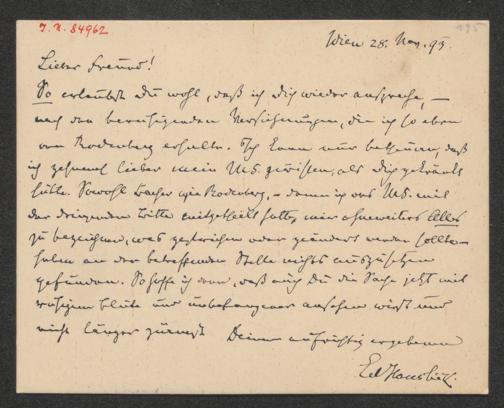 J. N. 84962
195
Wien 28. Nov. 95.
Lieber Freund!
So erlaubst Du wohl, daß ich Dich wieder anspreche, —
nach den beruhigenden Versicherungen, die ich so eben
von Rodenberg erhalte. Ich kann nur betheuern, daß
ich zehnmal lieber mein MS. zerrissen, als Dich gekränkt
hätte. Sowohl wie Rodenberg, — denen ich das MS. mit
der dringenden Bitte mitgetheilt hatte, mir ohneweiters Alles
zu bezeichnen, was gestrichen oder geändert werden sollte —
haben an der betreffenden Stelle nichts auszusetzen
gefunden. So hoffe ich denn, daß auch Du die Sache jetzt mit
ruhigem Blute und unbefangener ansehen wirst und
nicht länger zürnest Deinem aufrichtig ergebenen
Ed Hanslick.